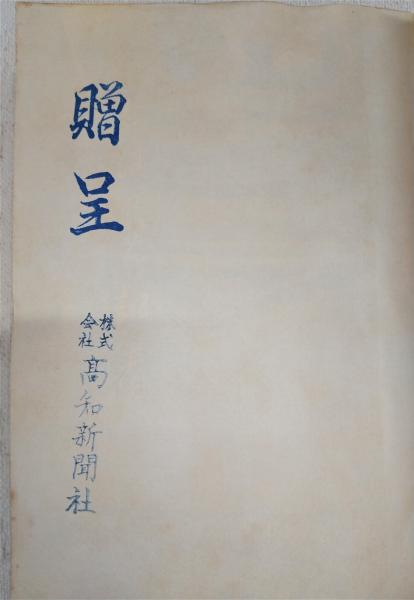 贈呈
株式会社
髙知新聞社